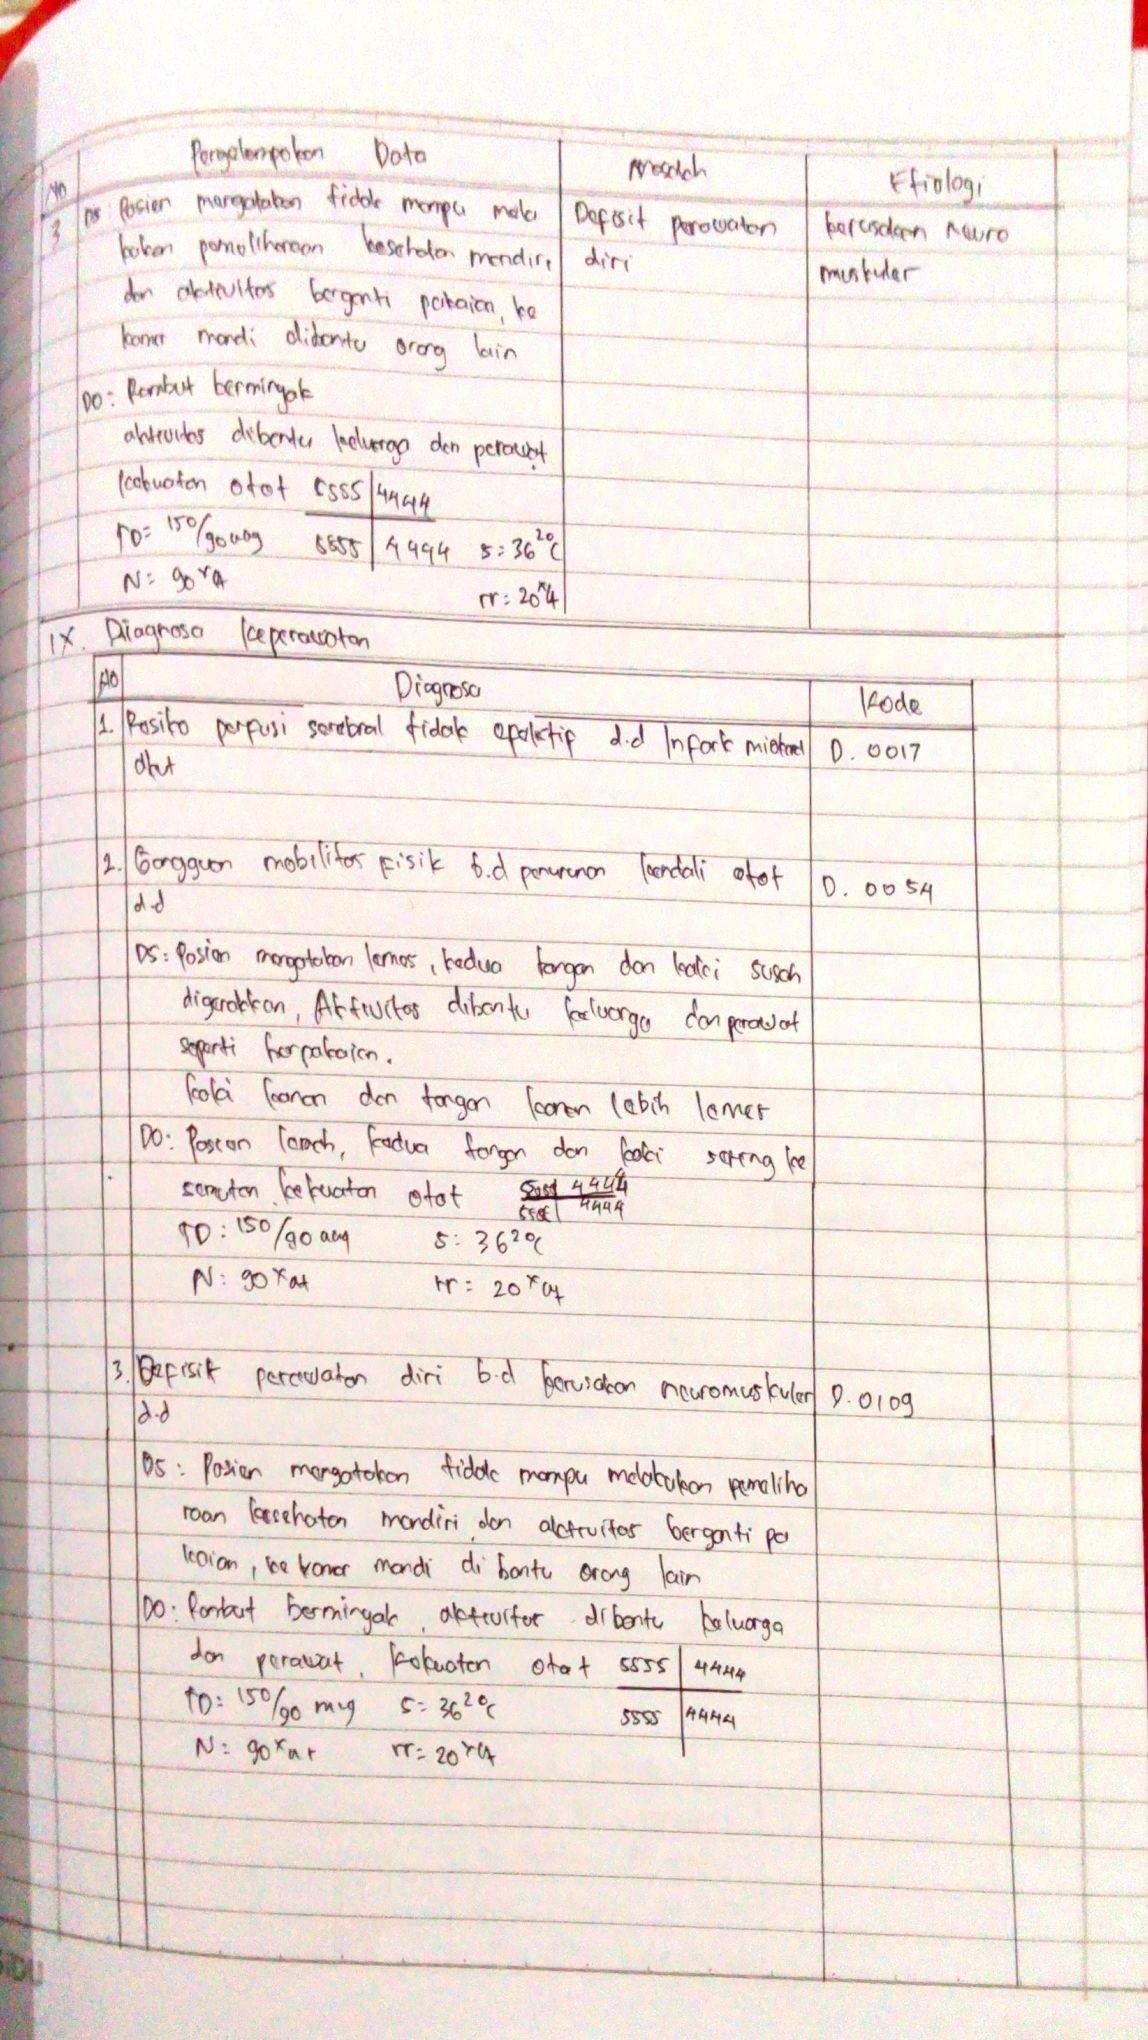 Pengelompokan Data
Masalah
Etiologi
No
3
DS: Pasien mengatakan tidak mampu mela
kukan pemeliharaan kesehatan mandiri,
dan aktivitas berganti pakaian, ke
kamar mandi dibantu orang lain
DO: Rambut berminyak
aktivitas dibantu keluarga dan perawat
kekuatan otot 5555 | 4444
TD= 150/90 5555 | 4444 S: 36 2°C
N: 90 x
rr: 20 x
Defisit perawatan
diri
kerusakan neuro
muskuler
IX. Diagnosa keperawatan
No
Diagnosa
Kode
1. Resiko perfusi serebral tidak epektif d.d Infark miokard D. 0017
akut
2. Gangguan mobilitas fisik b.d penurunan kendali otot D. 0054
d.d
DS: Pasien mengatakan lemas, kedua tangan dan kaki susah
digerakkan, Aktivitas dibantu keluarga dan perawat
seperti berpakaian.
kaki kanan dan tangan kanan lebih lemas
DO: Pasien lemah, kedua tangan dan kaki sering ke
semutan, kekuatan otot 5555 4444
5555 | 4444
TD: 150/90 S: 36 2°C
N: 90 x rr: 20 x
3. Defisit perawatan diri b.d kerusakan neuromuskuler D. 0109
d.d
DS: Pasien mengatakan tidak mampu melakukan pemeliha
raan kesehatan mandiri dan aktivitas berganti pa
kaian, ke kamar mandi di bantu orang lain
DO: Rambut berminyak, aktivitas dibantu keluarga
dan perawat, kekuatan otot 5555 | 4444
TD: 150/90 S= 36 2°C 5555 | 4444
N: 90 x rr= 20 x